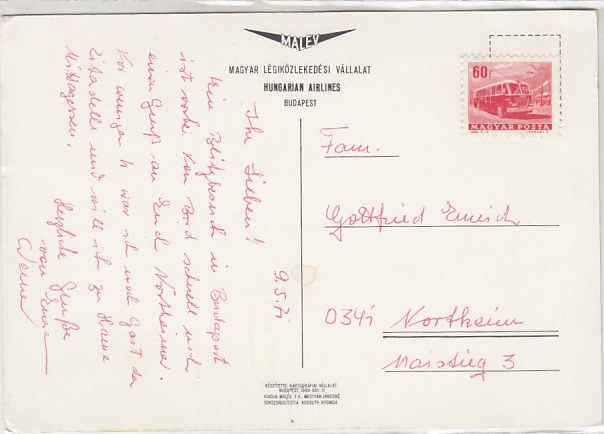 MALÉV
MAGYAR LÉGIKÖZLEKEDÉSI VÁLLALAT
HUNGARIAN AIRLINES
BUDAPEST
60f
MAGYAR POSTA
9.5.71
Ihr Lieben!
Kein Blitzbesuch in Budapest
ist vorbei. Von Bord schnell noch
einen Gruß an Euch Northeimer.
Vor wenigen h war ich noch Gast der
Zitadelle und will ich zu Hause
Mittagessen.
Herzliche Grüße
von Eurem
Werner
Fam.
Gottfried Emrich
0341 Northeim
Maistieg 3
KÉSZÍTETTE: KARTOGRÁFIAI VÁLLALAT
BUDAPEST
KIADJA MALÉV, F.K.: MESTYÁN JÁNOSNÉ
SOKSZOROSÍTOTTA: KOSSUTH NYOMDA